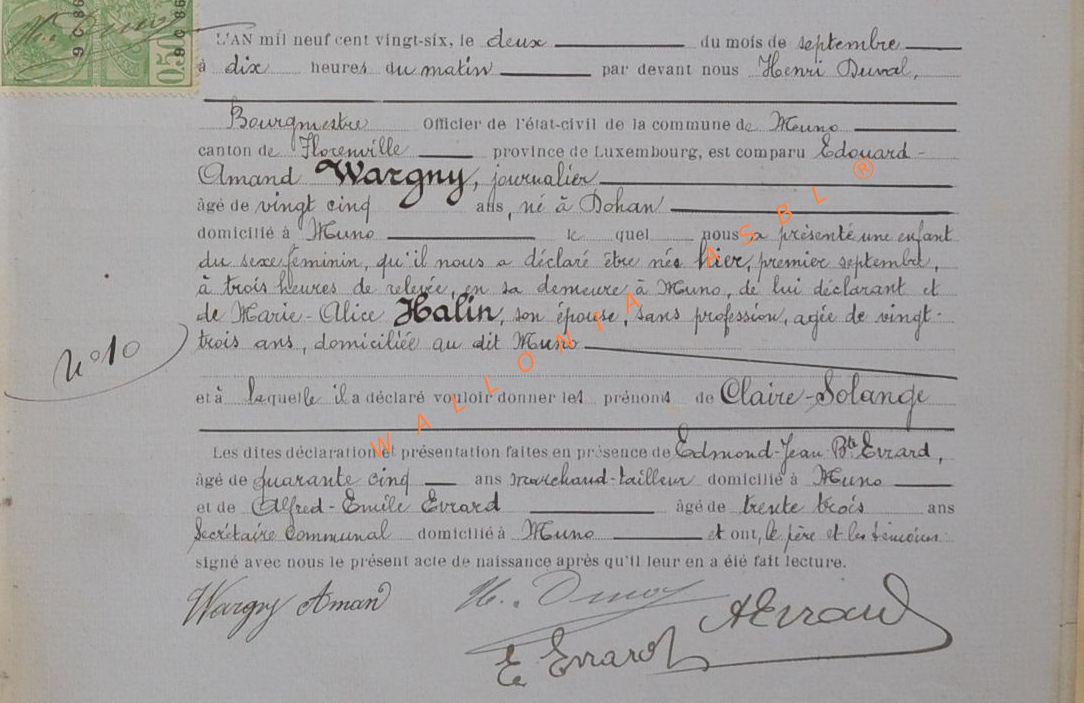 9 C 86
9 C 86
0.50
L'AN mil neuf cent vingt-six, le deux du mois de septembre
à dix heures du matin par devant nous Henri Duval,
Bourgmestre Officier de l'état-civil de la commune de Muno
canton de Florenville province de Luxembourg, est comparu Edouard-
Amand Wargny, journalier
âgé de vingt cinq ans, né à Dohan
domicilié à Muno le quel nous a présenté une enfant
du sexe féminin, qu'il nous a déclaré être née hier, premier septembre,
à trois heures de relevée, en sa demeure à Muno, de lui déclarant et
de Marie-Alice Halin, son épouse, sans profession, agée de vingt-
trois ans, domiciliée au dit Muno
N° 10
et à laquelle il a déclaré vouloir donner les prénoms de Claire-Solange
Les dites déclaration et présentation faites en présence de Edmond-Jean-Bte Evrard,
âgé de quarante cinq ans marchand-tailleur domicilié à Muno
et de Alfred-Emile Evrard âgé de trente trois ans
Secrétaire Communal domicilié à Muno et ont, le père et les témoins
signé avec nous le présent acte de naissance après qu'il leur en a été fait lecture.
Wargny Amand
H. Duval
AEvrard
E Evrard
WALLONIA ASBL ®